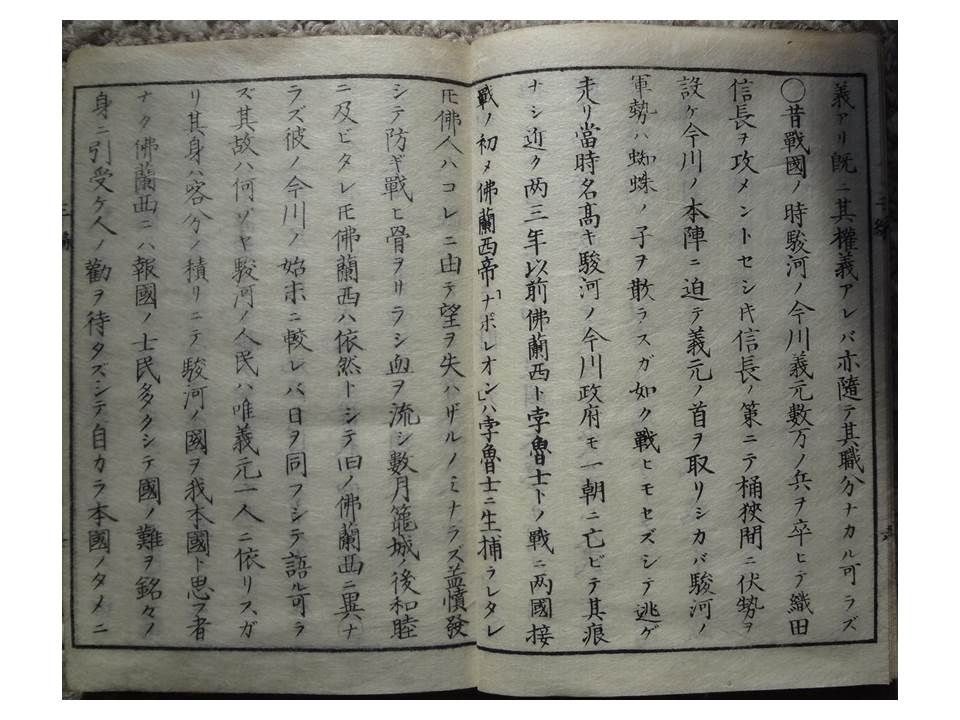 義アリ既ニ其權義アレバ亦隨テ其職分ナカル可ラズ
〇昔戰國ノ時駿河ノ今川義元數万ノ兵ヲ卒ヒテ織田
信長ヲ攻メントセシ𪜈信長ノ策ニテ桶狹間ニ伏勢ヲ
設ケ今川ノ本陣ニ迫テ義元ノ首ヲ取リシカバ駿河ノ
軍勢ハ蜘蛛ノ子ヲ散ラスガ如ク戰ヒモセズシテ逃ゲ
走リ當時名髙キ駿河ノ今川政府モ一朝ニ亡ビテ其痕
ナシ近ク两三年以前佛蘭西ト孛魯士トノ戰ニ两國接
戰ノ初メ佛蘭西帝「ナポレオン」ハ孛魯士ニ生捕ラレタレ
𪜈佛人ハコレニ由テ望ヲ失ハザルノミナラズ益憤發
シテ防ギ戰ヒ骨ヲサラシ血ヲ流シ數月籠城ノ後和睦
ニ及ビタレ𪜈佛蘭西ハ依然トシテ旧ノ佛蘭西ニ異ナ
ラズ彼ノ今川ノ始末ニ較レバ日ヲ同フシテ語ル可ラ
ズ其故ハ何ゾヤ駿河ノ人民ハ唯義元一人ニ依リスガ
リ其身ハ客分ノ積リニテ駿河ノ國ヲ我本國ト思フ者
ナク佛蘭西ニハ報國ノ士民多クシテ國ノ難ヲ銘々ノ
身ニ引受ケ人ノ勸ヲ待タズシテ自カラ本國ノタメニ